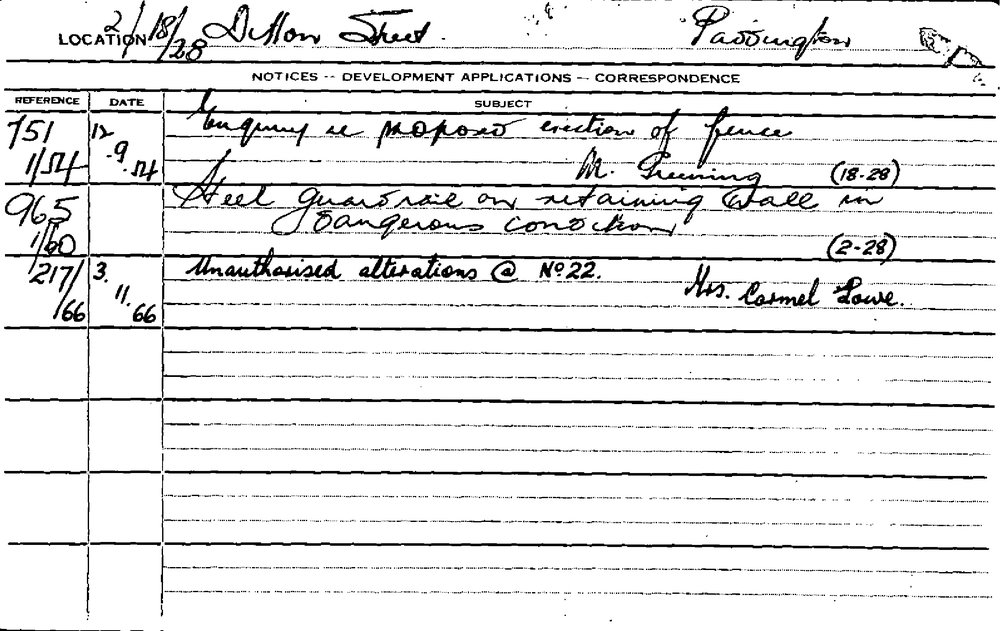 LOCATION 2/18/28 Dillon Street. Paddington
NOTICES -- DEVELOPMENT APPLICATIONS -- CORRESPONDENCE
REFERENCE DATE SUBJECT
751 12 Enquiry re proposed erection of fence
1/54 .9.54 M. Greening (18-28)
965 Steel guardrail on retaining wall in
dangerous condition
1/60 (2-28)
217/ 3. Unauthorised alterations @ No 22.
/66 11.66 Mrs. Carmel Lowe.